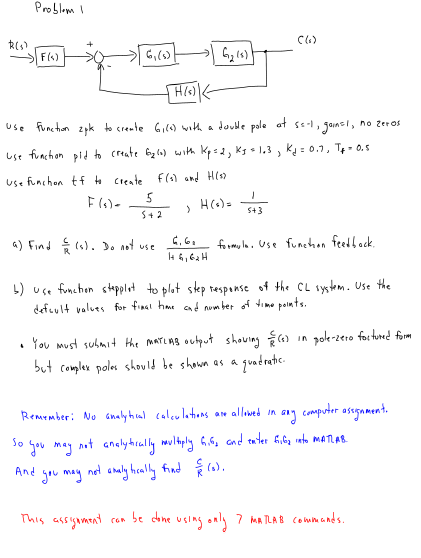 Problem 1
R(s) F(s) + - G₁(s) G₂(s) C(s)
H(s)
Use function zpk to create G₁(s) with a double pole at s=-1, gain=1, no zeros
Use function pid to create G₂(s) with Kp=2, KI=1.3, Kd=0.7, Tf=0.5
Use function tf to create F(s) and H(s)
F(s) = 5/(s+2) , H(s) = 1/(s+3)
a) Find C/R (s). Do not use G₁G₂/(1+G₁G₂H) formula. Use function feedback.
b) Use function stepplot to plot step response of the CL system. Use the
default values for final time and number of time points.
• You must submit the MATLAB output showing C/R (s) in pole-zero factored form
but complex poles should be shown as a quadratic.
Remember: No analytical calculations are allowed in any computer assignment.
So you may not analytically multiply G₁G₂ and enter G₁G₂ into MATLAB.
And you may not analytically find C/R (s).
This assignment can be done using only 7 MATLAB commands.